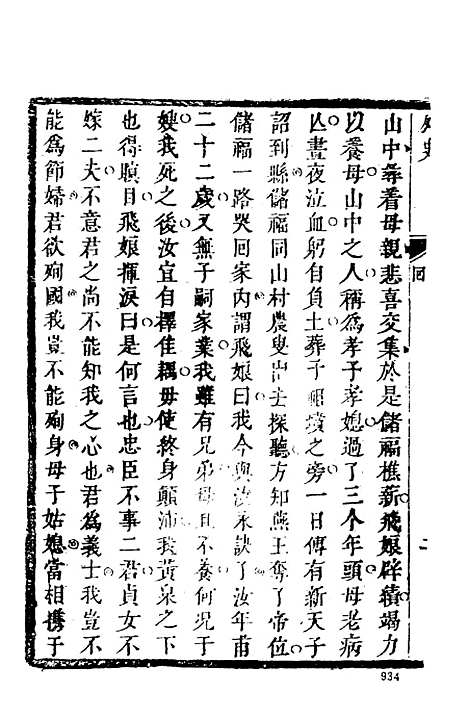 外史
回
二
山中尋着母親悲喜交集於是儲福樵薪飛娘辟績竭力
以養母山中之人稱爲孝子孝媳過了三个年頭母老病
亡晝夜泣血躬自負土葬于祖墳之旁一日傳有新天子
詔到縣儲福同山村農叟出去探聽方知燕王奪了帝位
儲福一路哭回家內謂飛娘曰我今與汝永訣了汝年甫
二十二歲又無子嗣家業我雖有兄弟母且不養何況于
嫂我死之後汝宜自擇佳耦毋使終身顛沛我黃泉之下
也得瞑目飛娘揮淚曰是何言也忠臣不事二君貞女不
嫁二夫不意君之尚不能知我之心也君爲義士我豈不
能爲節婦君欲殉國我豈不能殉身母子姑媳當相携于
934